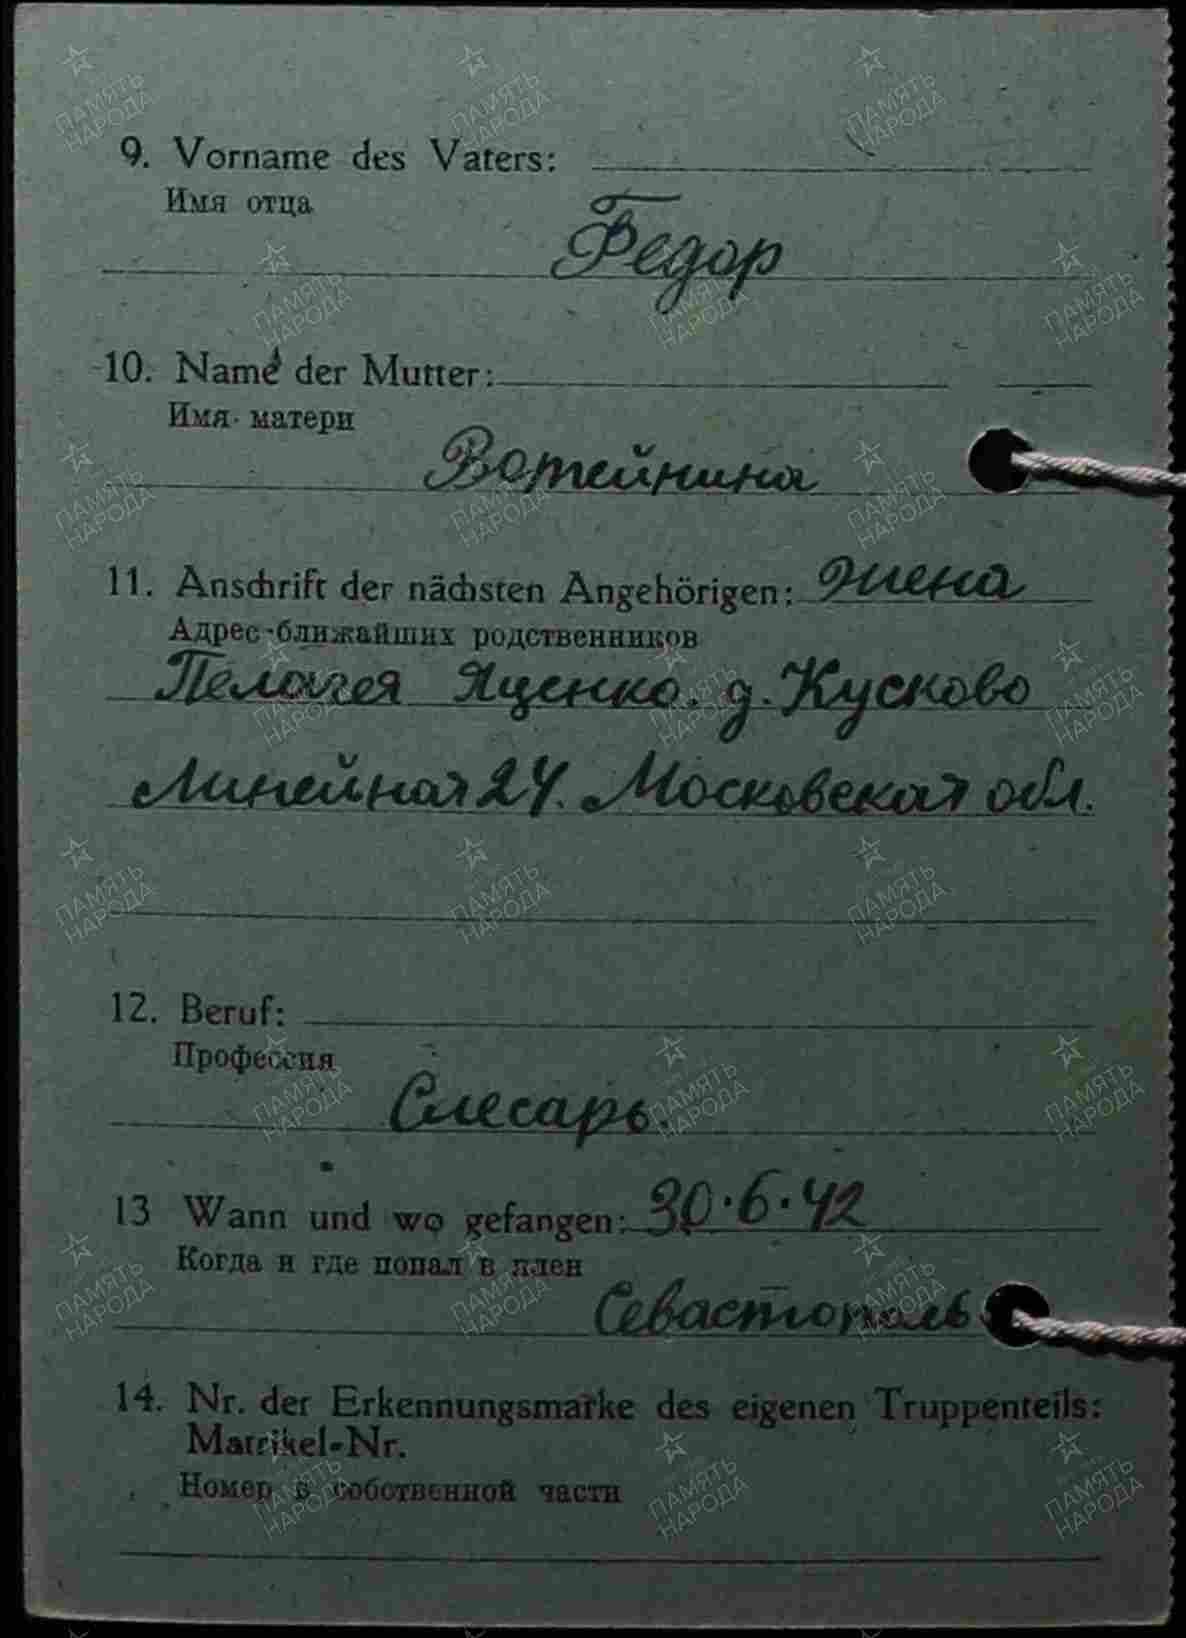 9. Vorname des Vaters:
Имя отца
Федор
10. Name der Mutter:
Имя матери
Вотейнина
11. Anschrift der nächsten Angehörigen: жена
Адрес ближайших родственников
Пелагея Яценко. д. Кусково
Линейная 24. Московская обл.
12. Beruf:
Профессия
Слесарь.
13 Wann und wo gefangen: 30.6.42
Когда и где попал в плен
Севастополь
14. Nr. der Erkennungsmarke des eigenen Truppenteils:
Matrikel-Nr.
Номер в собственной части
ПАМЯТЬ НАРОДА